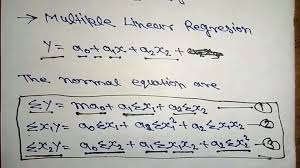 → Multiple Linear Regresion
Y = a₀ + a₁x + a₂x₂ +
The normal equation are
ΣY = ma₀ + a₁Σx₁ + a₂Σx₂ — ①
Σx₁Y = a₀Σx₁ + a₂Σx₁² + a₂Σx₁x₂ — ②
Σx₂Y = a₀Σx₂ + a₁Σx₁x₂ + a₂Σx₂² — ③